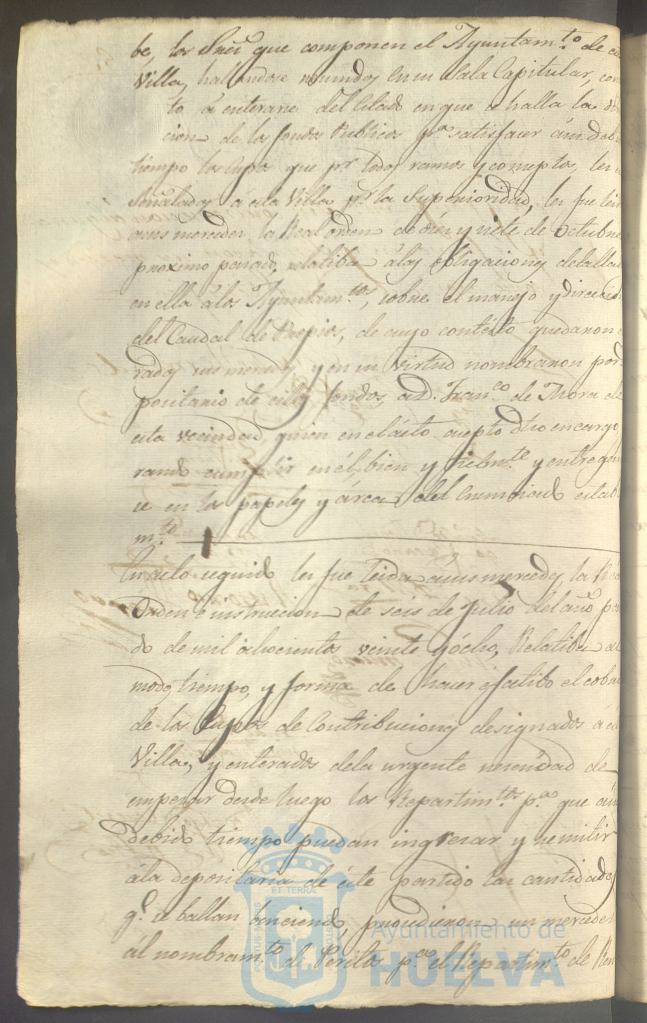 be, los Sres que componen el Ayuntam.to de e
Villa, hallandose reunidos en su Sala Capitular, con
to á enterarse del estado en que se halla la
cion de los fondos Publicos pa satisfacer á su deb
tiempo los Cupos que pr todos ramos y conceptos, le
señalados á esta Villa pr la Superioridad, les fue leid
a sus mercedes la Real orden de diez y siete de Octubre
proximo pasado, relatiba á las obligaciones
en ella á los Ayuntam.tos, sobre el manejo y direcc
del Caudal de Propios, de cuyo contesto quedaron
rados sus mercedes, y en su virtud nombraron por
positario de estos fondos, a D. Franco de Mora de
esta vecindad, quien en el acto acepto dho encargo
rando cumplir en él, bien y fielmte y entregan
se en los papeles y árcas del
mte
En acto seguido les fue leida a sus mercedes la Re
Orden e instrucion de seis de Julio del año pa
do de mil ochocientos veinte y ócho, Relatiba al
modo, tiempo, y forma de hacer efectibo el cobr
de los Cupos de Contribuciones designados á e
Villa, y enterados de la urgente necesidad de
empezar desde luego los Repartim.tos pa que á su
debido tiempo puedan ingresar y remitir
á la depositaria de éste partido las cantidades
qe se hallan benciendo, procedieron sus mercedes
ál nombramto de Peritos pa el Repartimto de
PORTUS MARIS
ET TERRAE
CUSTODIA
Ayuntamiento de
HUELVA